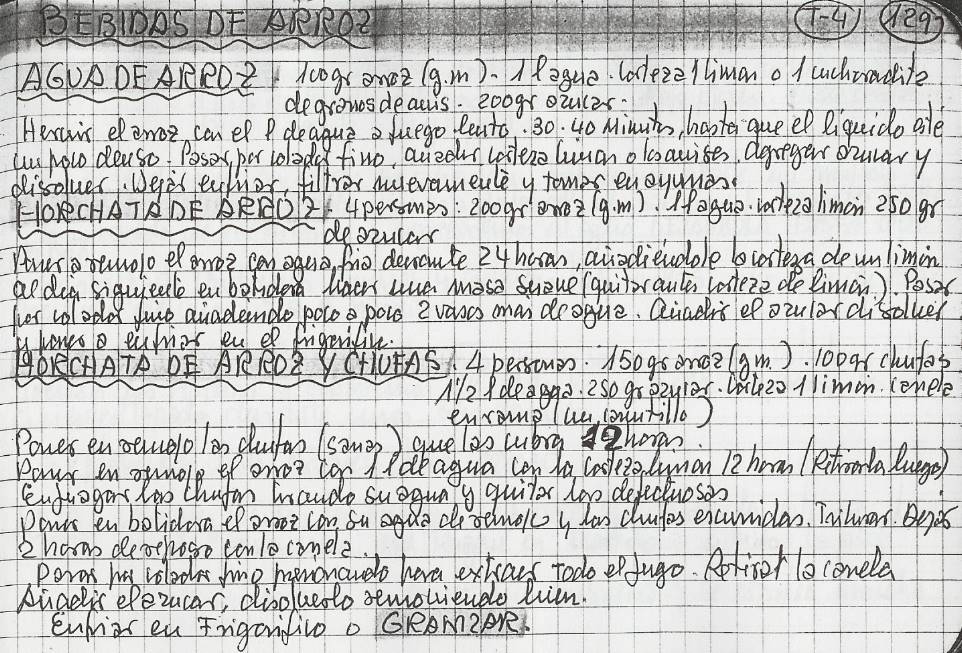 BEBIDAS DE ARROZ T-4 129
AGUA DE ARROZ: 100gr arroz (g.m) - 1 l agua. Corteza 1 limon o 1 cucharadita
de granos de anis. 200gr azucar.
Hervir el arroz con el l de agua a fuego lento. 30-40 minutos, hasta que el liquido esté
un poco denso. Pasar por colador fino, añadir corteza limon o los anises. Agregar azucar y
disolver. Dejar enfriar, filtrar nuevamente y tomar en ayunas.
HORCHATA DE ARROZ: 4 personas: 200gr arroz (g.m). 1 l agua. corteza limón 250 gr
de azucar
Poner a remojo el arroz con agua fria durante 24 horas, añadiéndole la corteza de un limón
al dia siguiente en batidora hacer una masa suave (quitar antes corteza de limón). Pasar
por colador fino añadiendo poco a poco 2 vasos mas de agua. Añadir el azucar disolver
y poner a enfriar en el frigorifico.
HORCHATA DE ARROZ Y CHUFAS: 4 personas. 150gr arroz (g.m). 100gr chufas
1 1/2 l de agua. 250 gr azucar. Corteza 1 limón. canela
en rama (un canutillo)
Poner en remojo las chufas (sanas) que las cubra 12 horas.
Poner en remojo el arroz con 1 l de agua con la corteza limon 12 horas (Retirarla luego)
Enjuagar las chufas tirando su agua y quitar las defectuosas
Poner en batidora el arroz con su agua de remojo y las chufas escurridas. Triturar. Dejar
2 horas de reposo con la canela.
Pasar por colador fino presionando para extraer todo el jugo. Retirar la canela
Añadir el azucar, disolverlo removiendo bien.
Enfriar en Frigorifico o GRANIZAR.